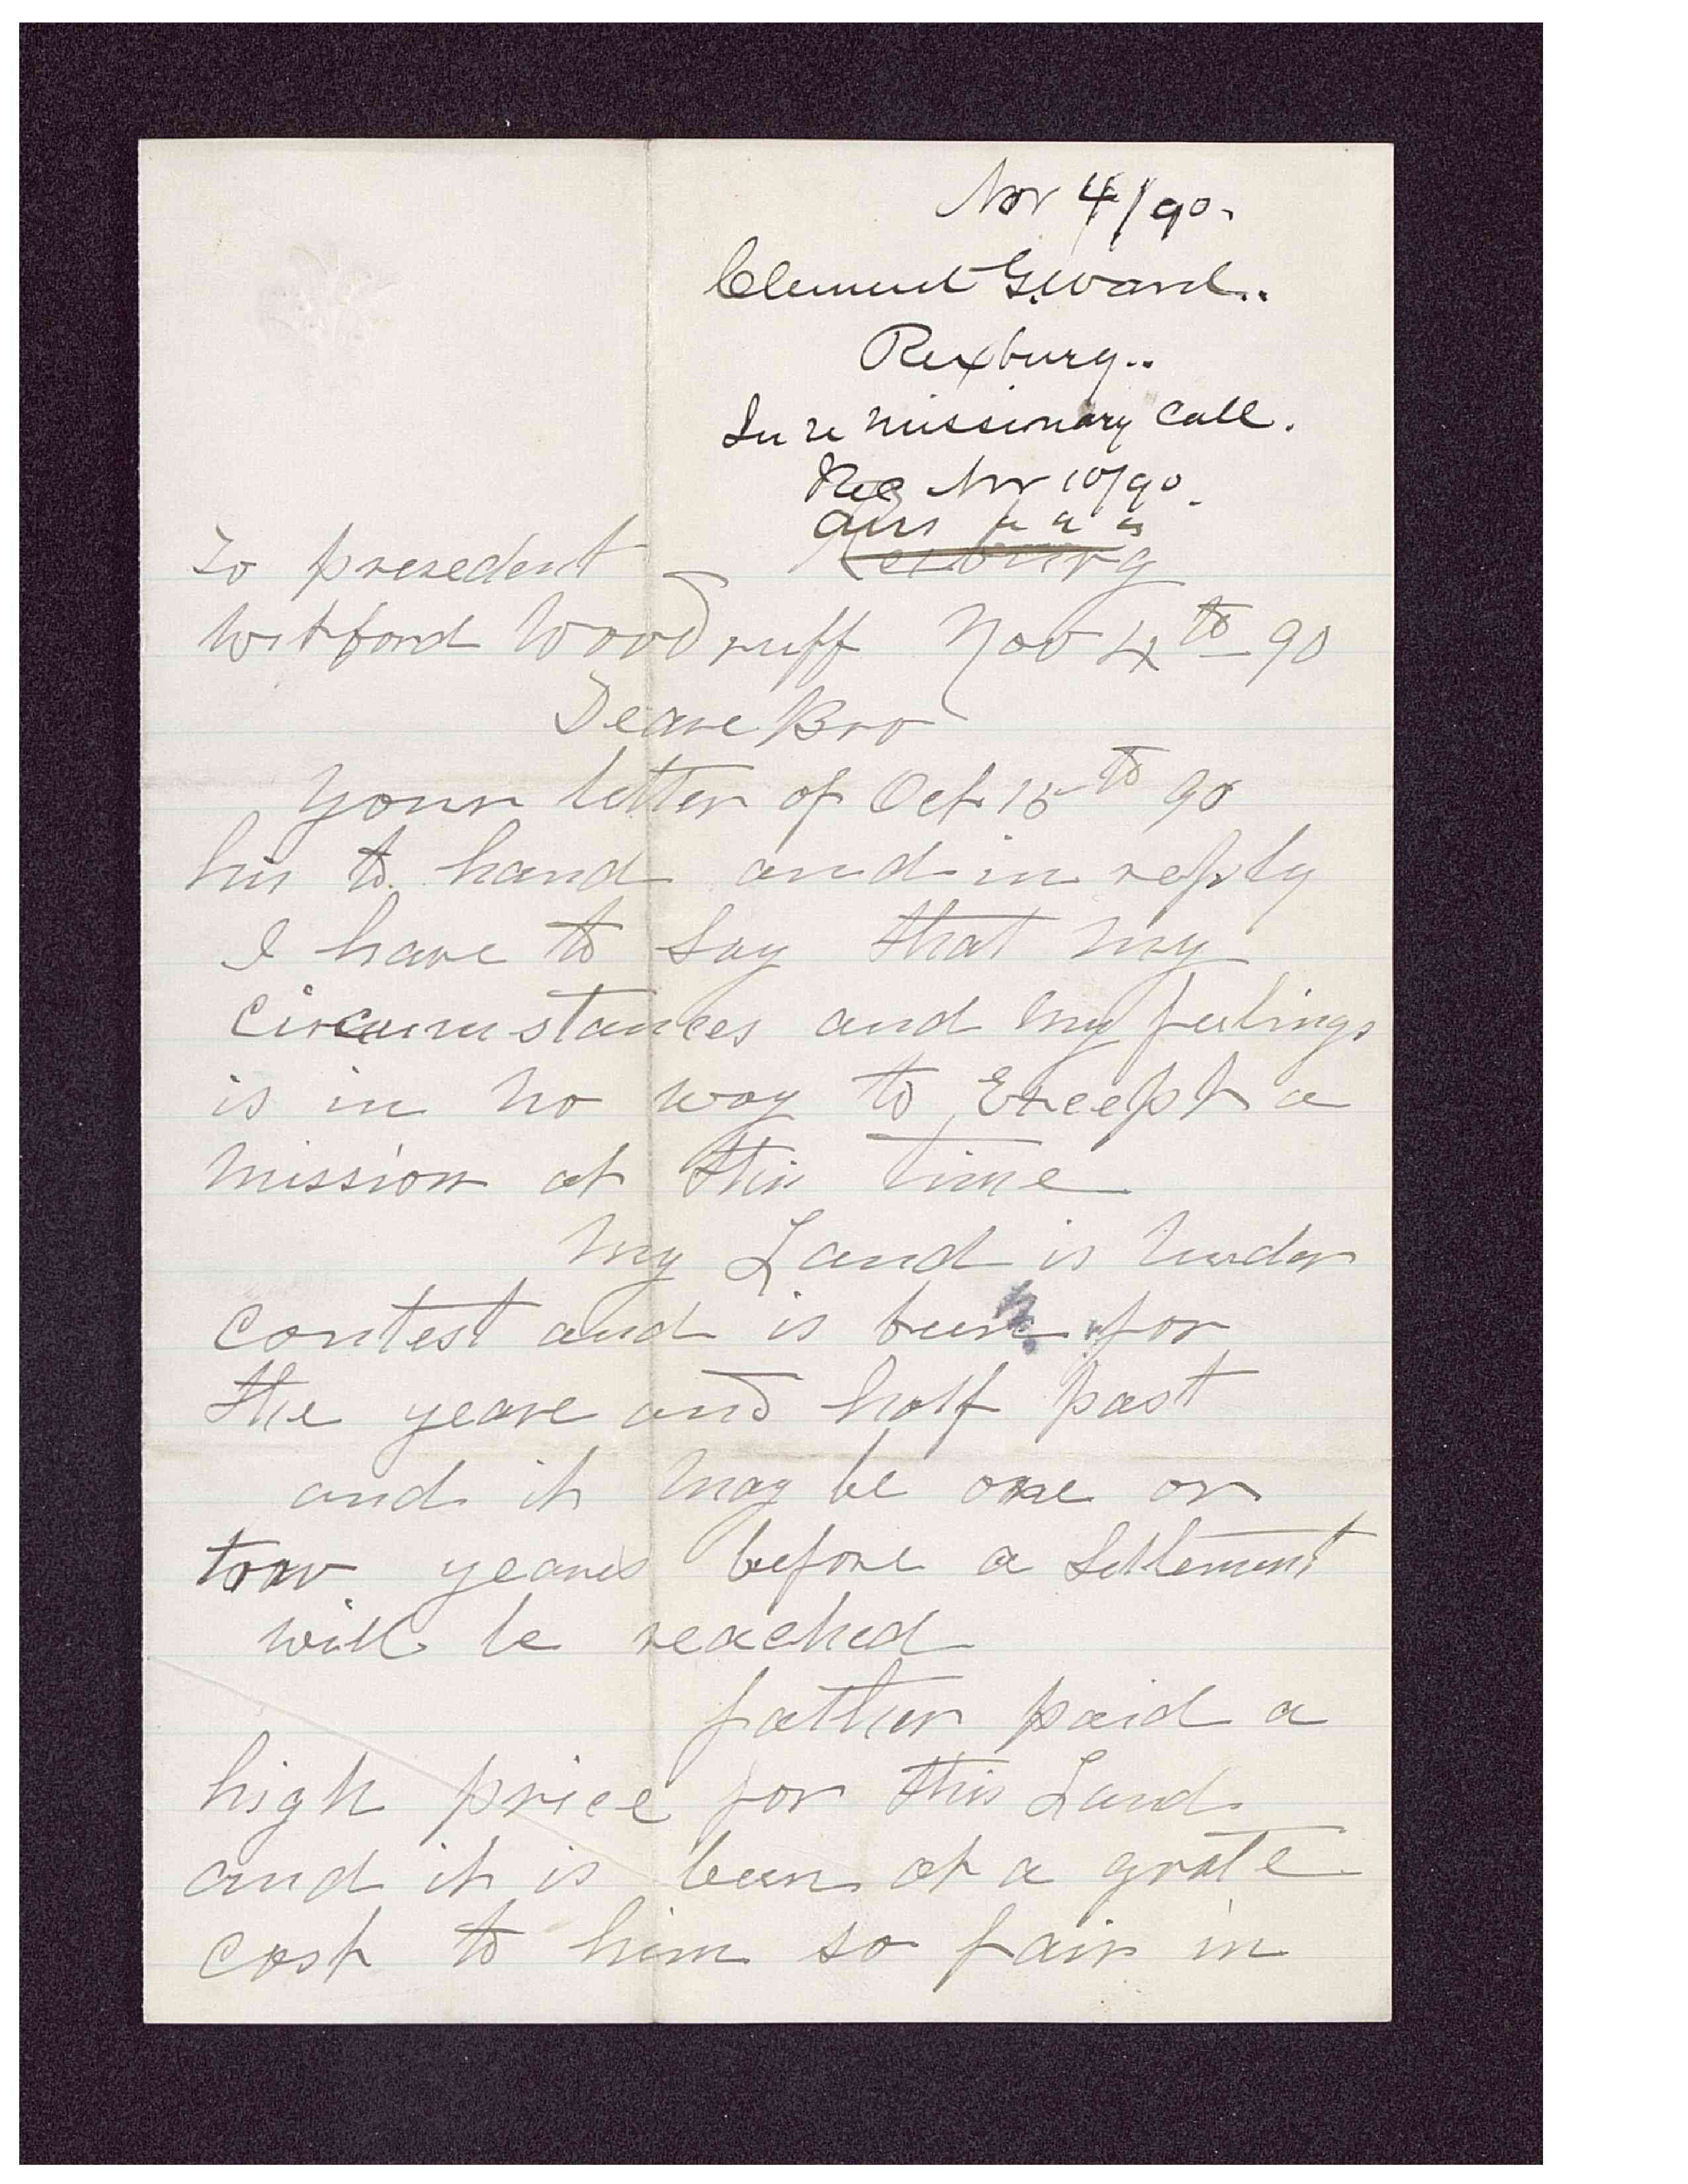 Nov 4/90.
Clement G. Ward..
Rexburg..
In re missionary call.
Rec Nov 10/90.
Ans " " "
To presedent Rexburg
Witford Woodruff Nov 4th 90
Deare Bro
Your letter of Oct 15th 90
his to hand and in reply
I have to say that my
circumstances and my feelings
is in no way to Except a
mission at this time
My Land is under
contest and is been for
the yeare and half past
and it may be one or
tow yeares before a Setlement
will be reached
father paid a
high price for this Land
and it is been at a grate
cost to him so fair in